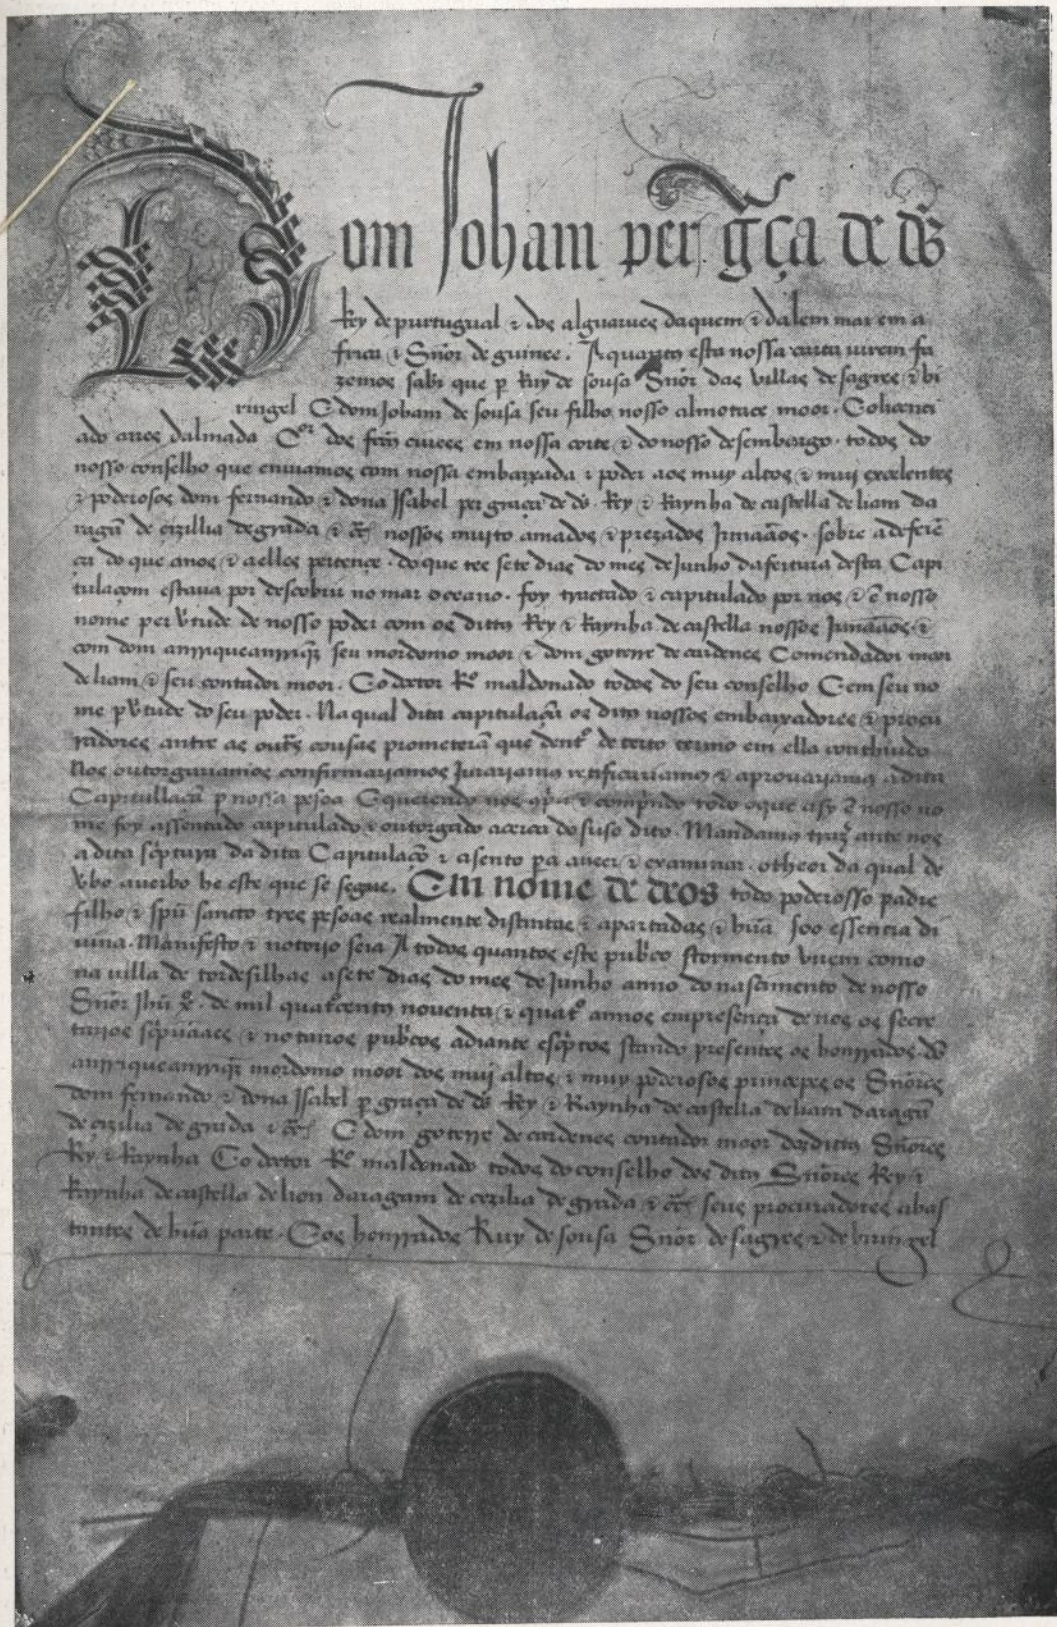 Dom Joham per gr̃ça de ds̃
Rey de purtugual ⁊ dos alguarues daquem ⁊ dalem mar em a
frica ⁊ Sñor de guinee. A quantos esta nossa carta virem fa
zemos saber que p Ruy de sousa Sñor das villas de sagres ⁊ bi
ringel E dom Joham de sousa seu filho nosso almotace moor. E o licenci
ado aires dalmada Cor dos feitos ciuees em nossa corte ⁊ do nosso desembargo. todos do
nosso conselho que enuiamos com nossa embaixada ⁊ poder aos muy altos ⁊ muy excelentes
⁊ poderosos dom fernando ⁊ dona Isabel per graça de ds̃. Rey ⁊ Raynha de castella de liam da
ragã de cizillia de grada ⁊ etc̃ nossos muito amados ⁊ prezados Irmaãos. sobre a deferẽ
ça do que a nos ⁊ a elles pertençe. do que tee sete dias do mes de Junho da feitura desta Capi
tulaçom estaua por descobrir no mar oceano. foy tractado ⁊ capitulado por nos ⁊ ẽ nosso
nome per v̾tude de nosso poder com os dittos Rey ⁊ Raynha de castella nossos Irmaãos ⁊
com dom anrrique anrriq̃z seu mordomo moor ⁊ dom goterre de cardenes Comendador moor
de liam ⁊ seu contador moor. E o doctor Ro maldonado todos do seu conselho E em seu no
me p v̾tude do seu poder. Na qual dita capitulaçã os ditos nossos embaixadores ⁊ procu
radores antre as outs̃ cousas prometerã que dento de certo termo em ella conthiudo
Nos outorgariamos confirmariamos Jurariamos retificariamos ⁊ aprouariamos a dita
Capitullaçã p nossa pesoa E querendo nos ⁊ comp̃indo todo o que asy ẽ nosso no
me foy assentado capitulado ⁊ outorgado acerca do suso dito. Mandamos traz̃ ante nos
a dita sc̃ptura da dita Capitulaçõ ⁊ asento pa a veer ⁊ examinar. o theor da qual de
v̾bo a uerbo he este que se segue. Em nome de deos todo poderosso padre
filho ⁊ spũ sancto tres pesoas realmente distintas ⁊ apartadas ⁊ hũa soo essencia di
uina. Manifesto ⁊ notorio seia A todos quantos este pub̃co stormento virem como
na villa de tordesilhas a sete dias do mes de Junho anno do nascimento de nosso
Sñor Jhũ x̃ de mil quatrcentos nouenta ⁊ quato annos em presença de nos os secre
tarios sc̃puãaes ⁊ notarios pub̃cos adiante esc̃ptos stando presentes os honrrados. dõ
anrrique anrriq̃z mordomo moor dos muy altos ⁊ muy poderosos principes os Sñores
dom fernando ⁊ dona Isabel p graça de ds̃ Rey ⁊ Raynha de castella de liam daragã
de cizilia de grada ⁊ etc̃ E dom goterre de cardenes contador moor dos dittos Sñores
Rey ⁊ Raynha E o doctor Ro maldonado todos do conselho dos ditos Sñores Rey ⁊
Raynha de castella de lion daragam de cezilia de grada ⁊ etc̃ seus procuradores abas
tantes de hũa parte. E os honrrados Ruy de sousa Sñor de sagres ⁊ de biringel